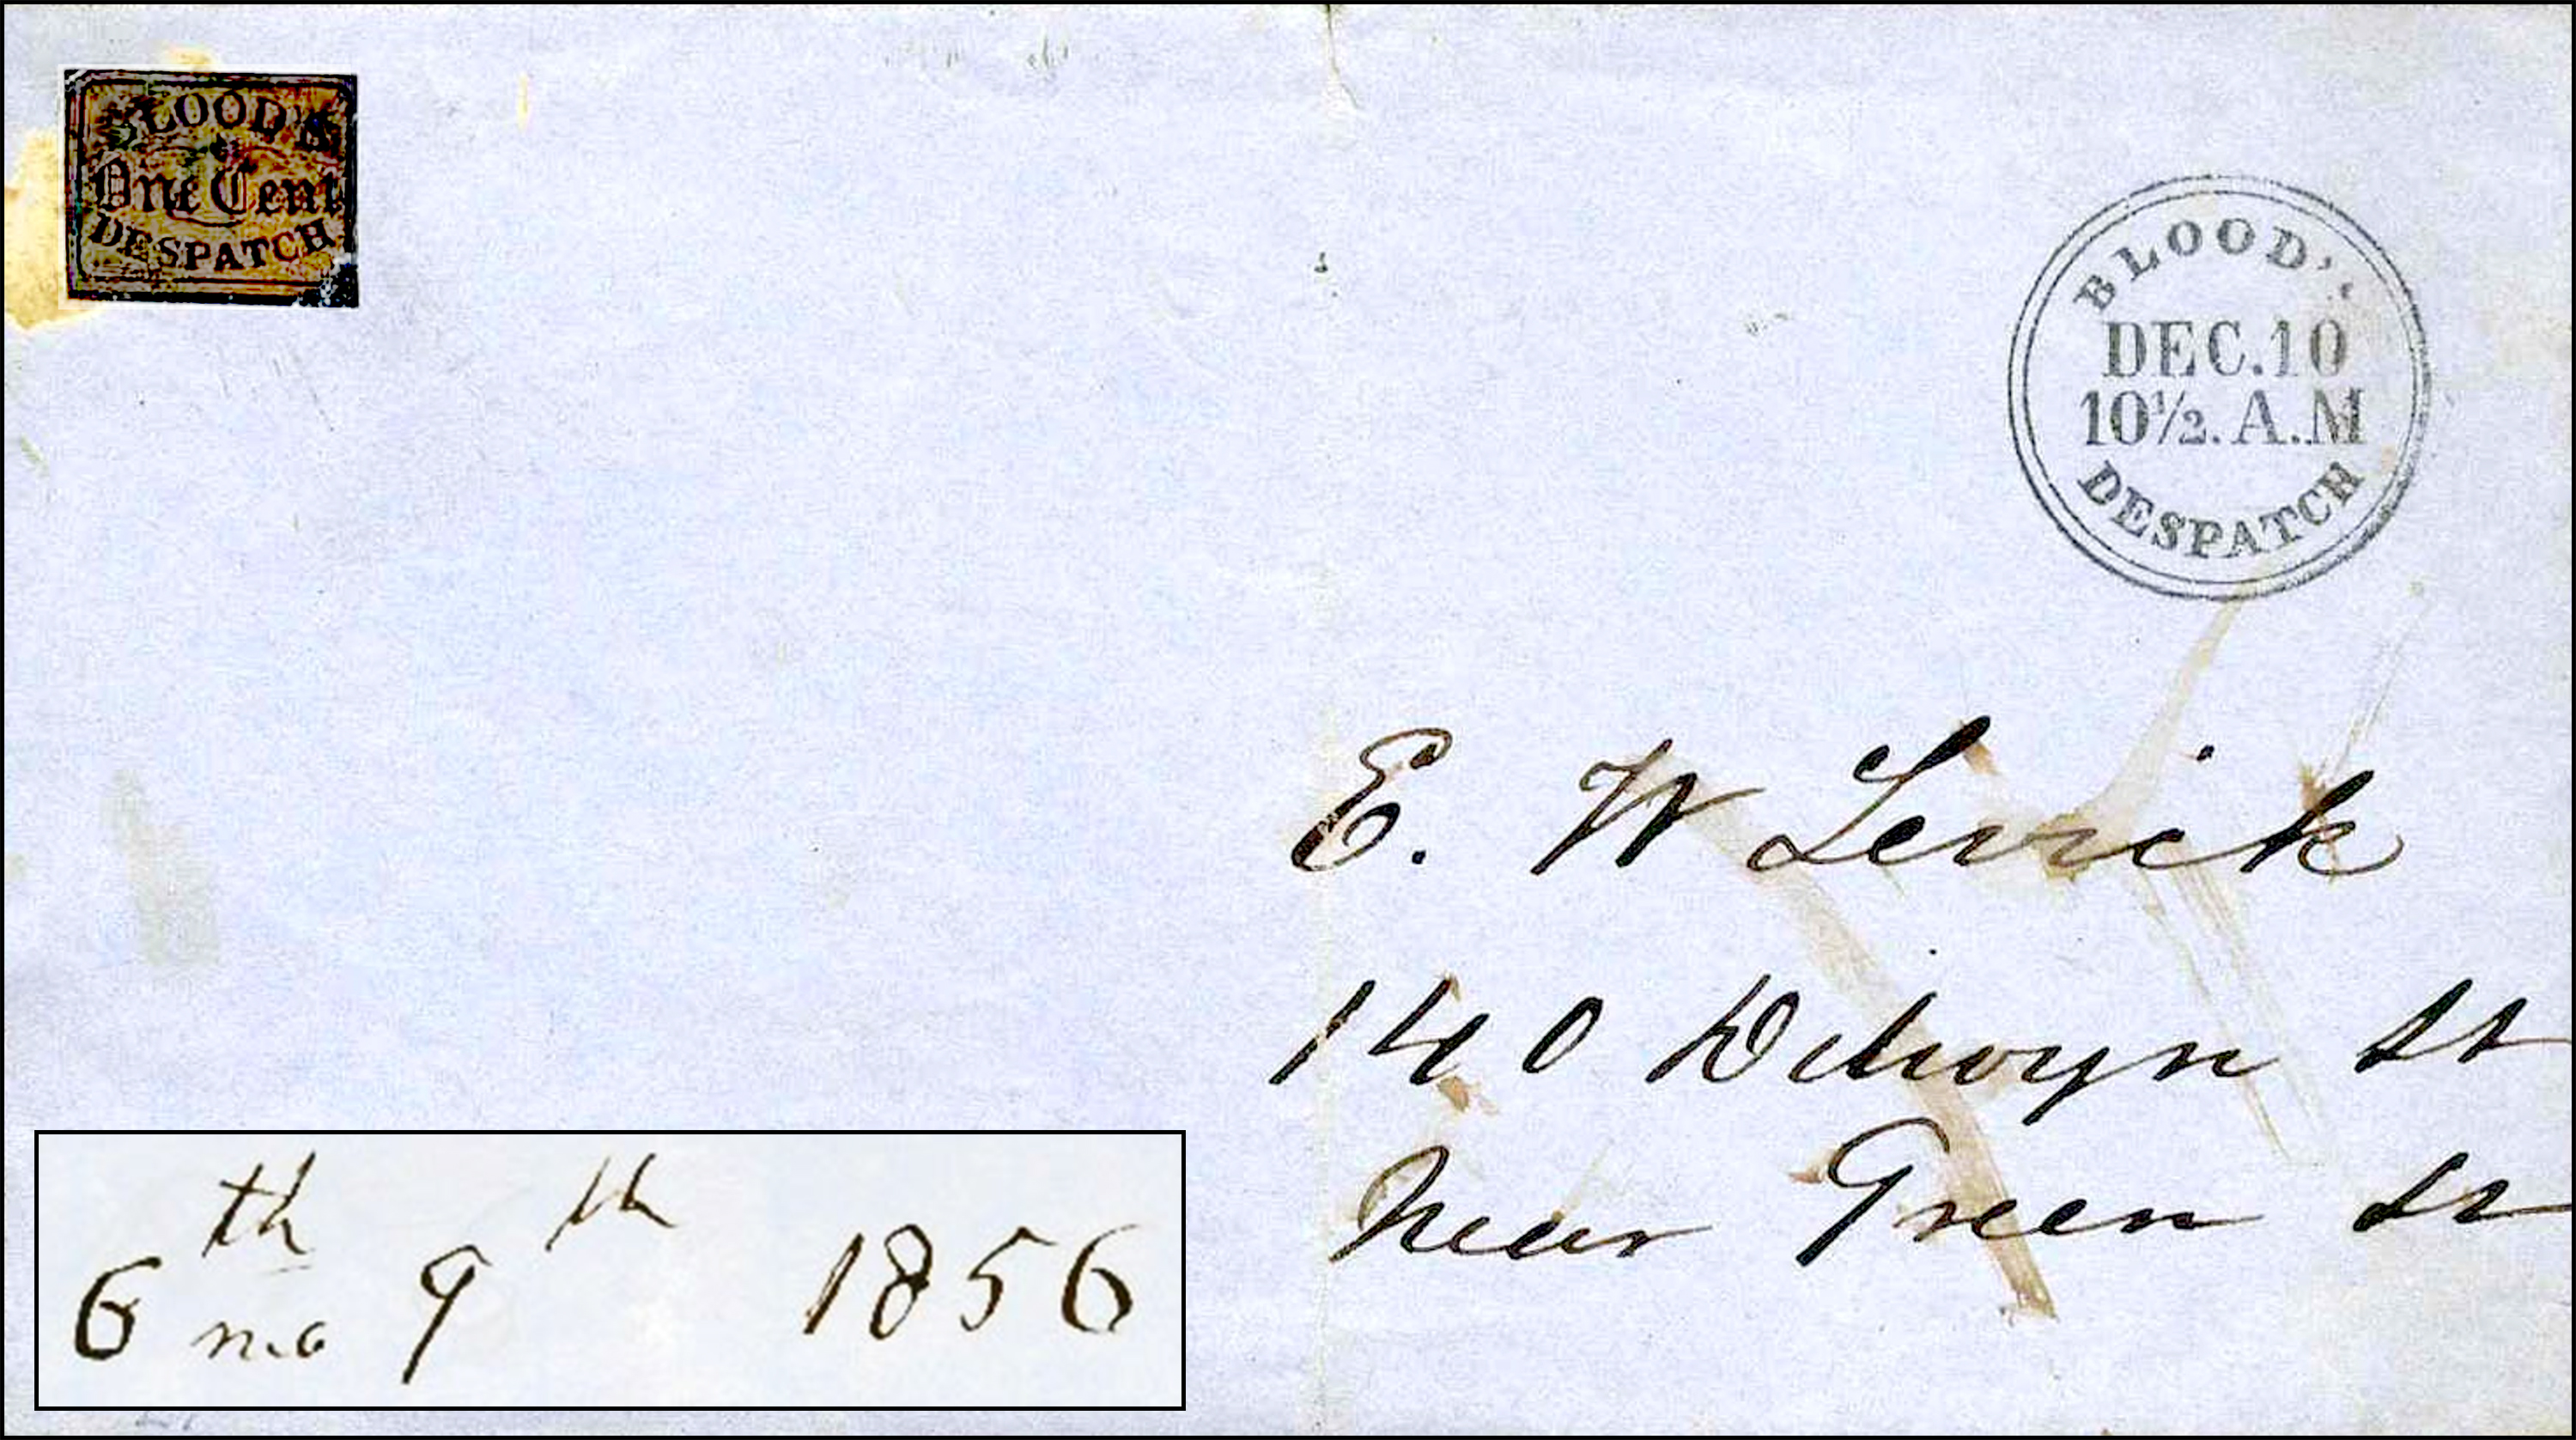 BLOOD'S
One Cent
DESPATCH
BLOOD'S
DEC.10
10½.A.M
DESPATCH
E. W Levick
140 Dilwyn St
Near Green St
6th mo 9th 1856